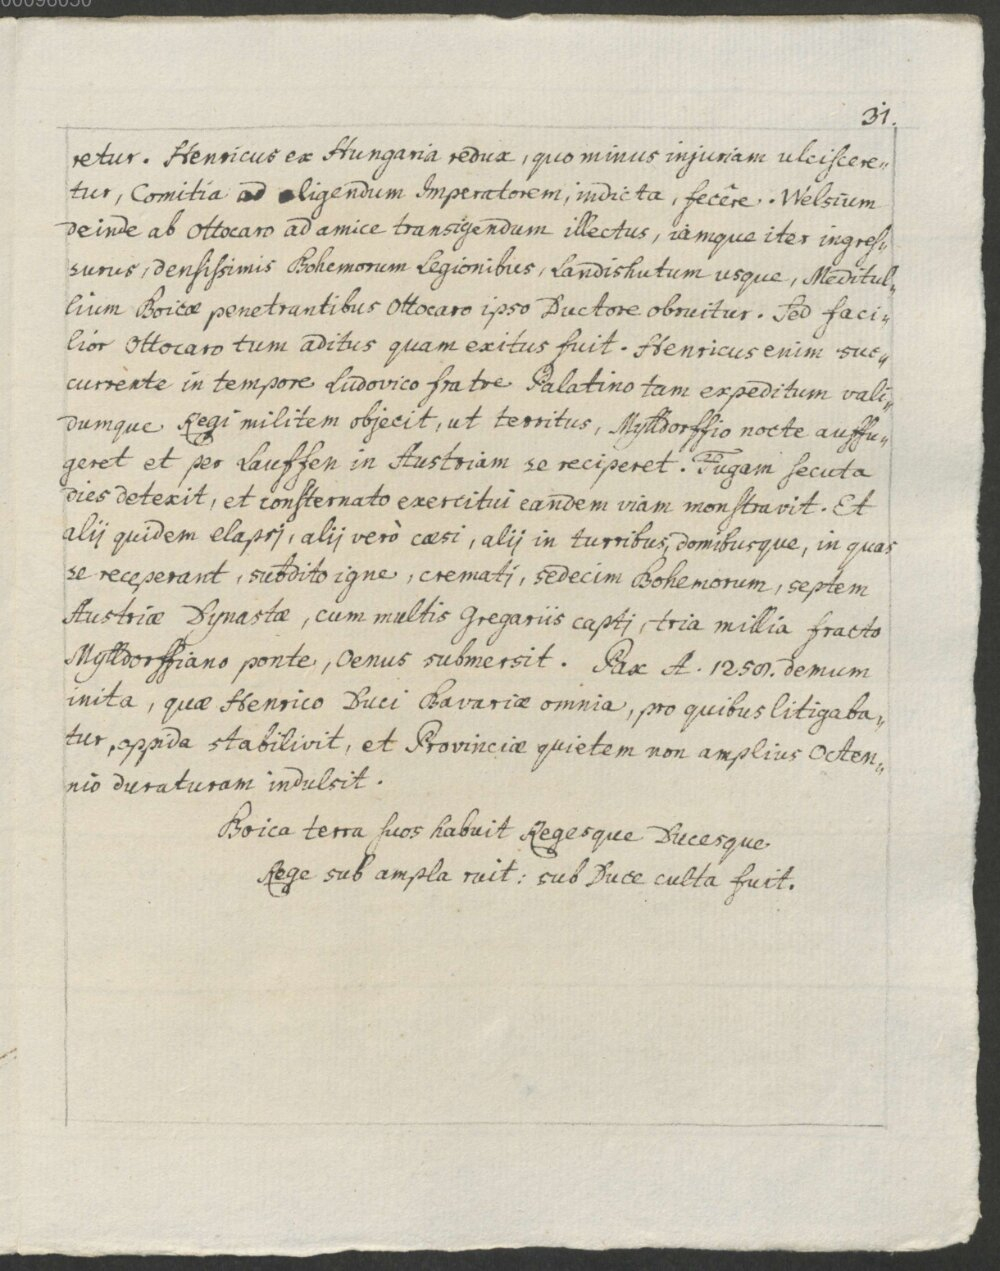 00096050
31.
retur. Henricus ex Hungaria redux, quo minus injuriam ulciscere„
tur, Comitia ad eligendum Imperatorem, indicta, fecêre. Welsium
deinde ab Ottocaro ad amice transigendum illectus, iamque iter ingres„
surus, densissimis Bohemorum Legionibus, Landishutum usque, Meditul„
lium Boicæ penetrantibus Ottocaro ipso Ductore obruitur. Sed faci„
lior Ottocaro tum aditus quam exitus fuit. Henricus enim suc„
currente in tempore Ludovico fratre Palatino tam expeditum vali„
dumque Regi militem objecit, ut territus, Mylldorffio nocte auffu„
geret et per Lauffen in Austriam se reciperet. Fugam secuta
dies detexit, et consternato exercitui eandem viam monstravit. Et
alij quidem elapsj, alij verò cæsi, alij in turribus, domibusque, in quas
se receperant, subdito igne, crematj, sedecim Bohemorum, septem
Austriæ Dynastæ, cum multis Gregariis captj, tria millia fracto
Mylldorffiano ponte, Oenus submersit. Pax A. 1257. demum
inita, quæ Henrico Duci Bavariæ omnia, pro quibus litigaba„
tur, oppida stabilivit, et Provinciæ quietem non amplius Octen„
nio duraturam indulsit.
Boica terra suos habuit Regesque Ducesque
Rege sub ampla ruit: sub Duce culta fuit.